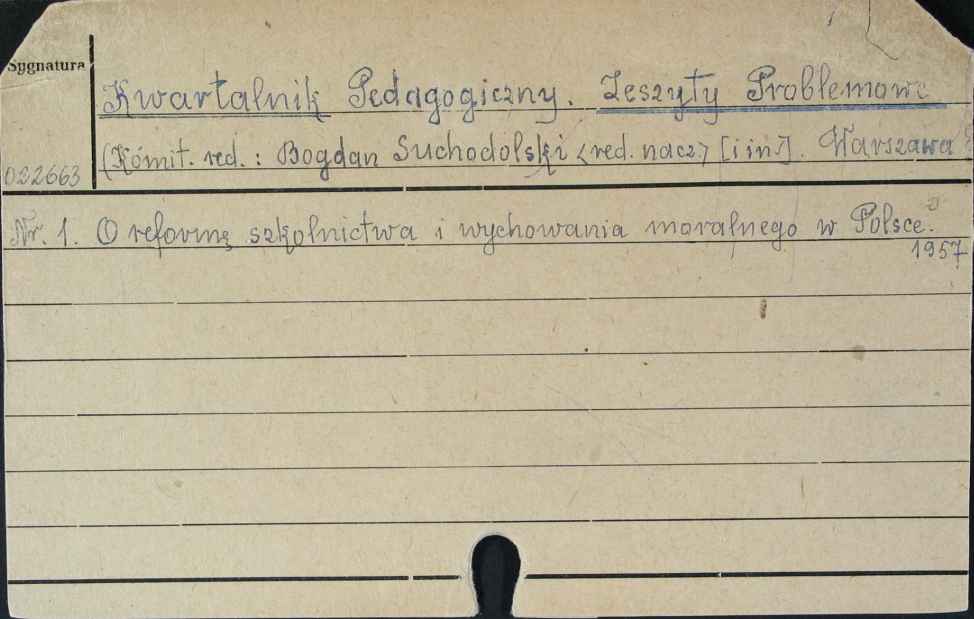 Sygnatura
Kwartalnik Pedagogiczny. Zeszyty Problemowe
(Komit. red.: Bogdan Suchodolski <red. nacz.> [i in.]. Warszawa
022663
Nr. 1. O reformę szkolnictwa i wychowania moralnego w Polsce.
1957